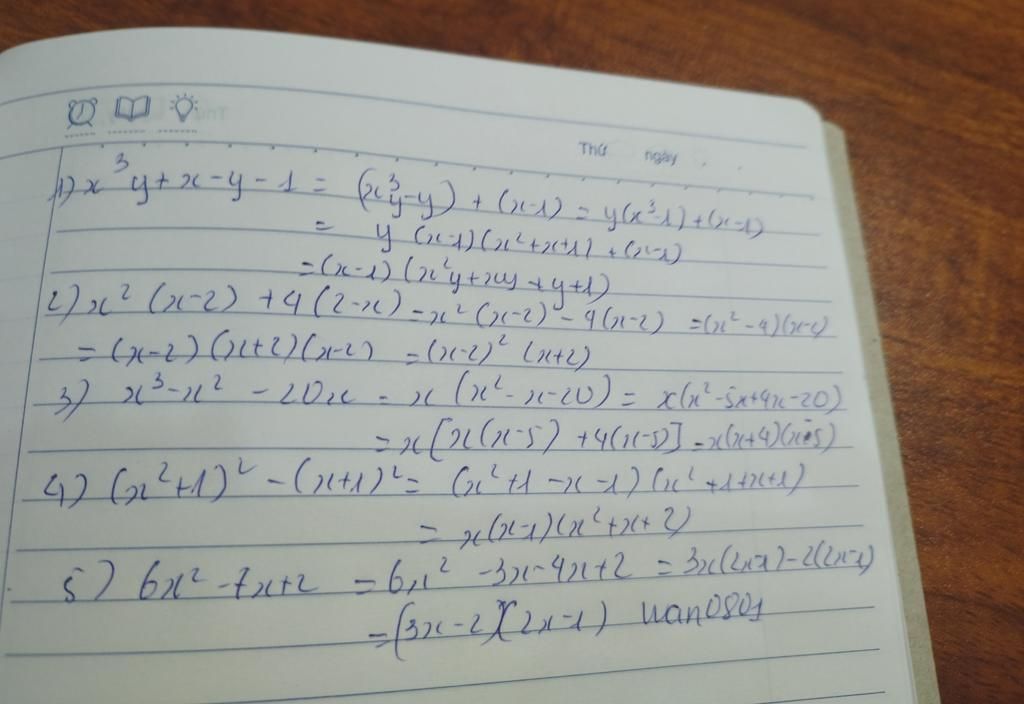 Thứ ngày
1) x³y + x - y - 1 = (x³y - y) + (x-1) = y(x³-1) + (x-1)
= y (x-1)(x²+x+1) + (x-1)
= (x-1) (x²y + xy + y + 1)
2) x² (x-2) + 4(2-x) = x² (x-2) - 4(x-2) = (x² - 4)(x-2)
= (x-2) (x+2)(x-2) = (x-2)² (x+2)
3) x³ - x² - 20x = x (x² - x - 20) = x(x² - 5x + 4x - 20)
= x [x(x-5) + 4(x-5)] = x(x+4)(x-5)
4) (x²+1)² - (x+1)² = (x²+1 - x - 1) (x² + 1 + x + 1)
= x(x-1)(x²+x+2)
5) 6x² - 7x + 2 = 6x² - 3x - 4x + 2 = 3x(2x-1) - 2(2x-1)
= (3x - 2)(2x - 1) uan0801